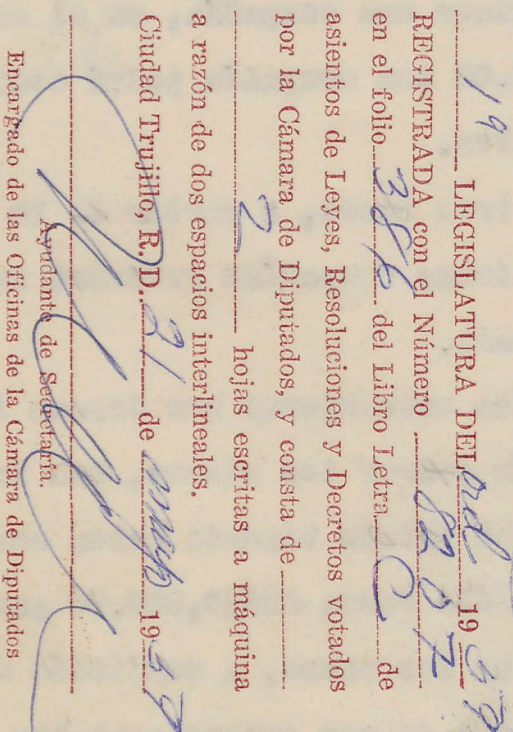 1ª LEGISLATURA DEL ord 1959
REGISTRADA con el Número 8207
en el folio 386 del Libro Letra C de
asientos de Leyes, Resoluciones y Decretos votados
por la Cámara de Diputados, y consta de
2 hojas escritas a máquina
a razón de dos espacios interlineales.
Ciudad Trujillo, R. D. 21 de 1959
Ayudante de Secretaría.
Encargado de las Oficinas de la Cámara de Diputados